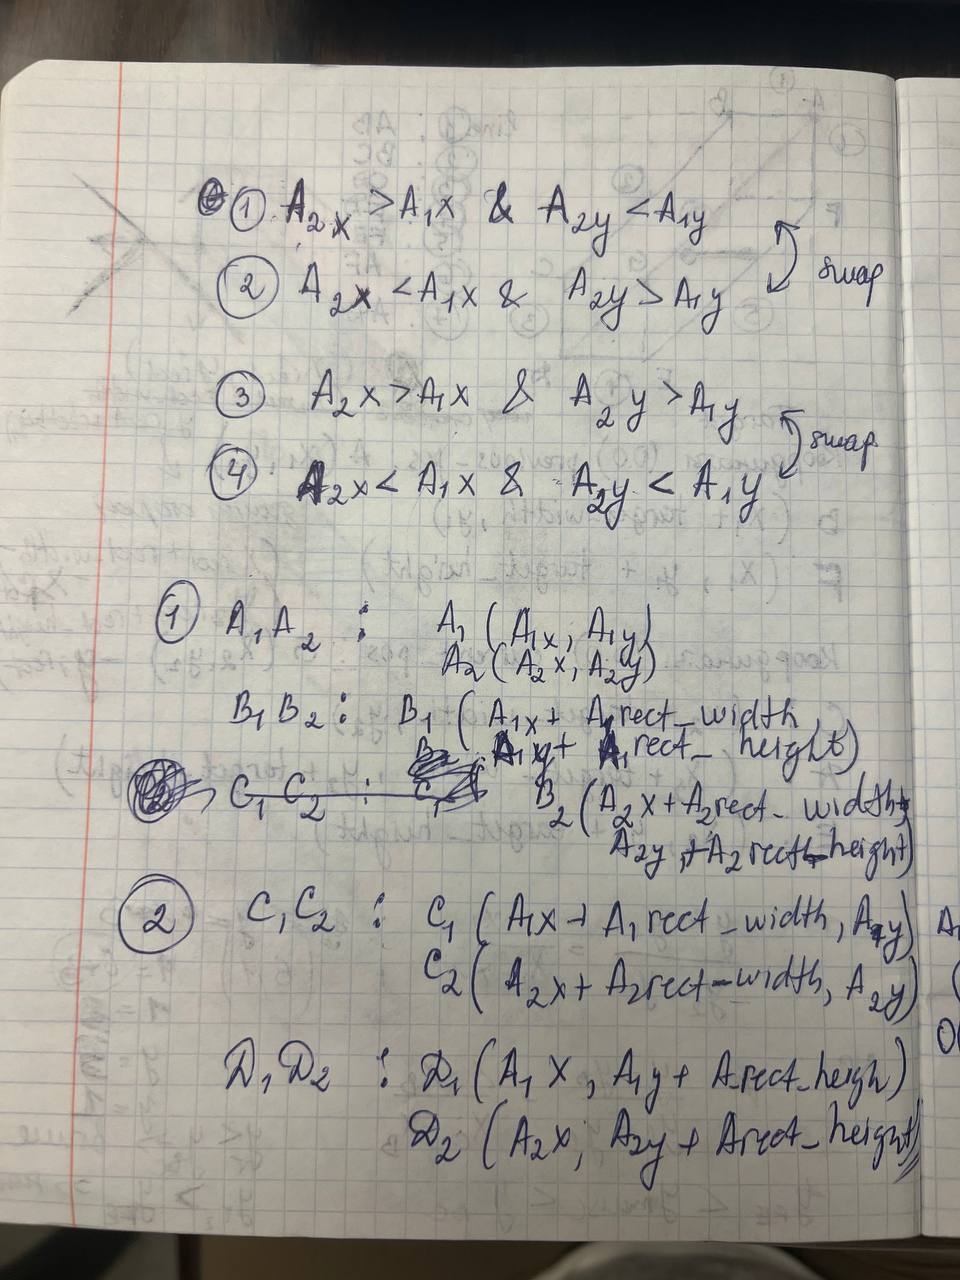 ① A₂x > A₁x & A₂y < A₁y
swap
② A₂x < A₁x & A₂y > A₁y
③ A₂x > A₁x & A₂y > A₁y
swap
④ A₂x < A₁x & A₂y < A₁y
① A₁A₂ : A₁ (A₁x, A₁y)
A₂ (A₂x, A₂y)
B₁B₂ : B₁ (A₁x + A₁rect_width,
A₁y + A₁rect_height)
C₁C₂ : C₁
B₂ (A₂x + A₂rect_width,
A₂y + A₂rect_height)
② C₁C₂ : C₁ (A₁x + A₁rect_width, A₁y)
C₂ (A₂x + A₂rect_width, A₂y)
D₁D₂ : D₁ (A₁x, A₁y + A_rect_heigh)
D₂ (A₂x, A₂y + Arect_height)